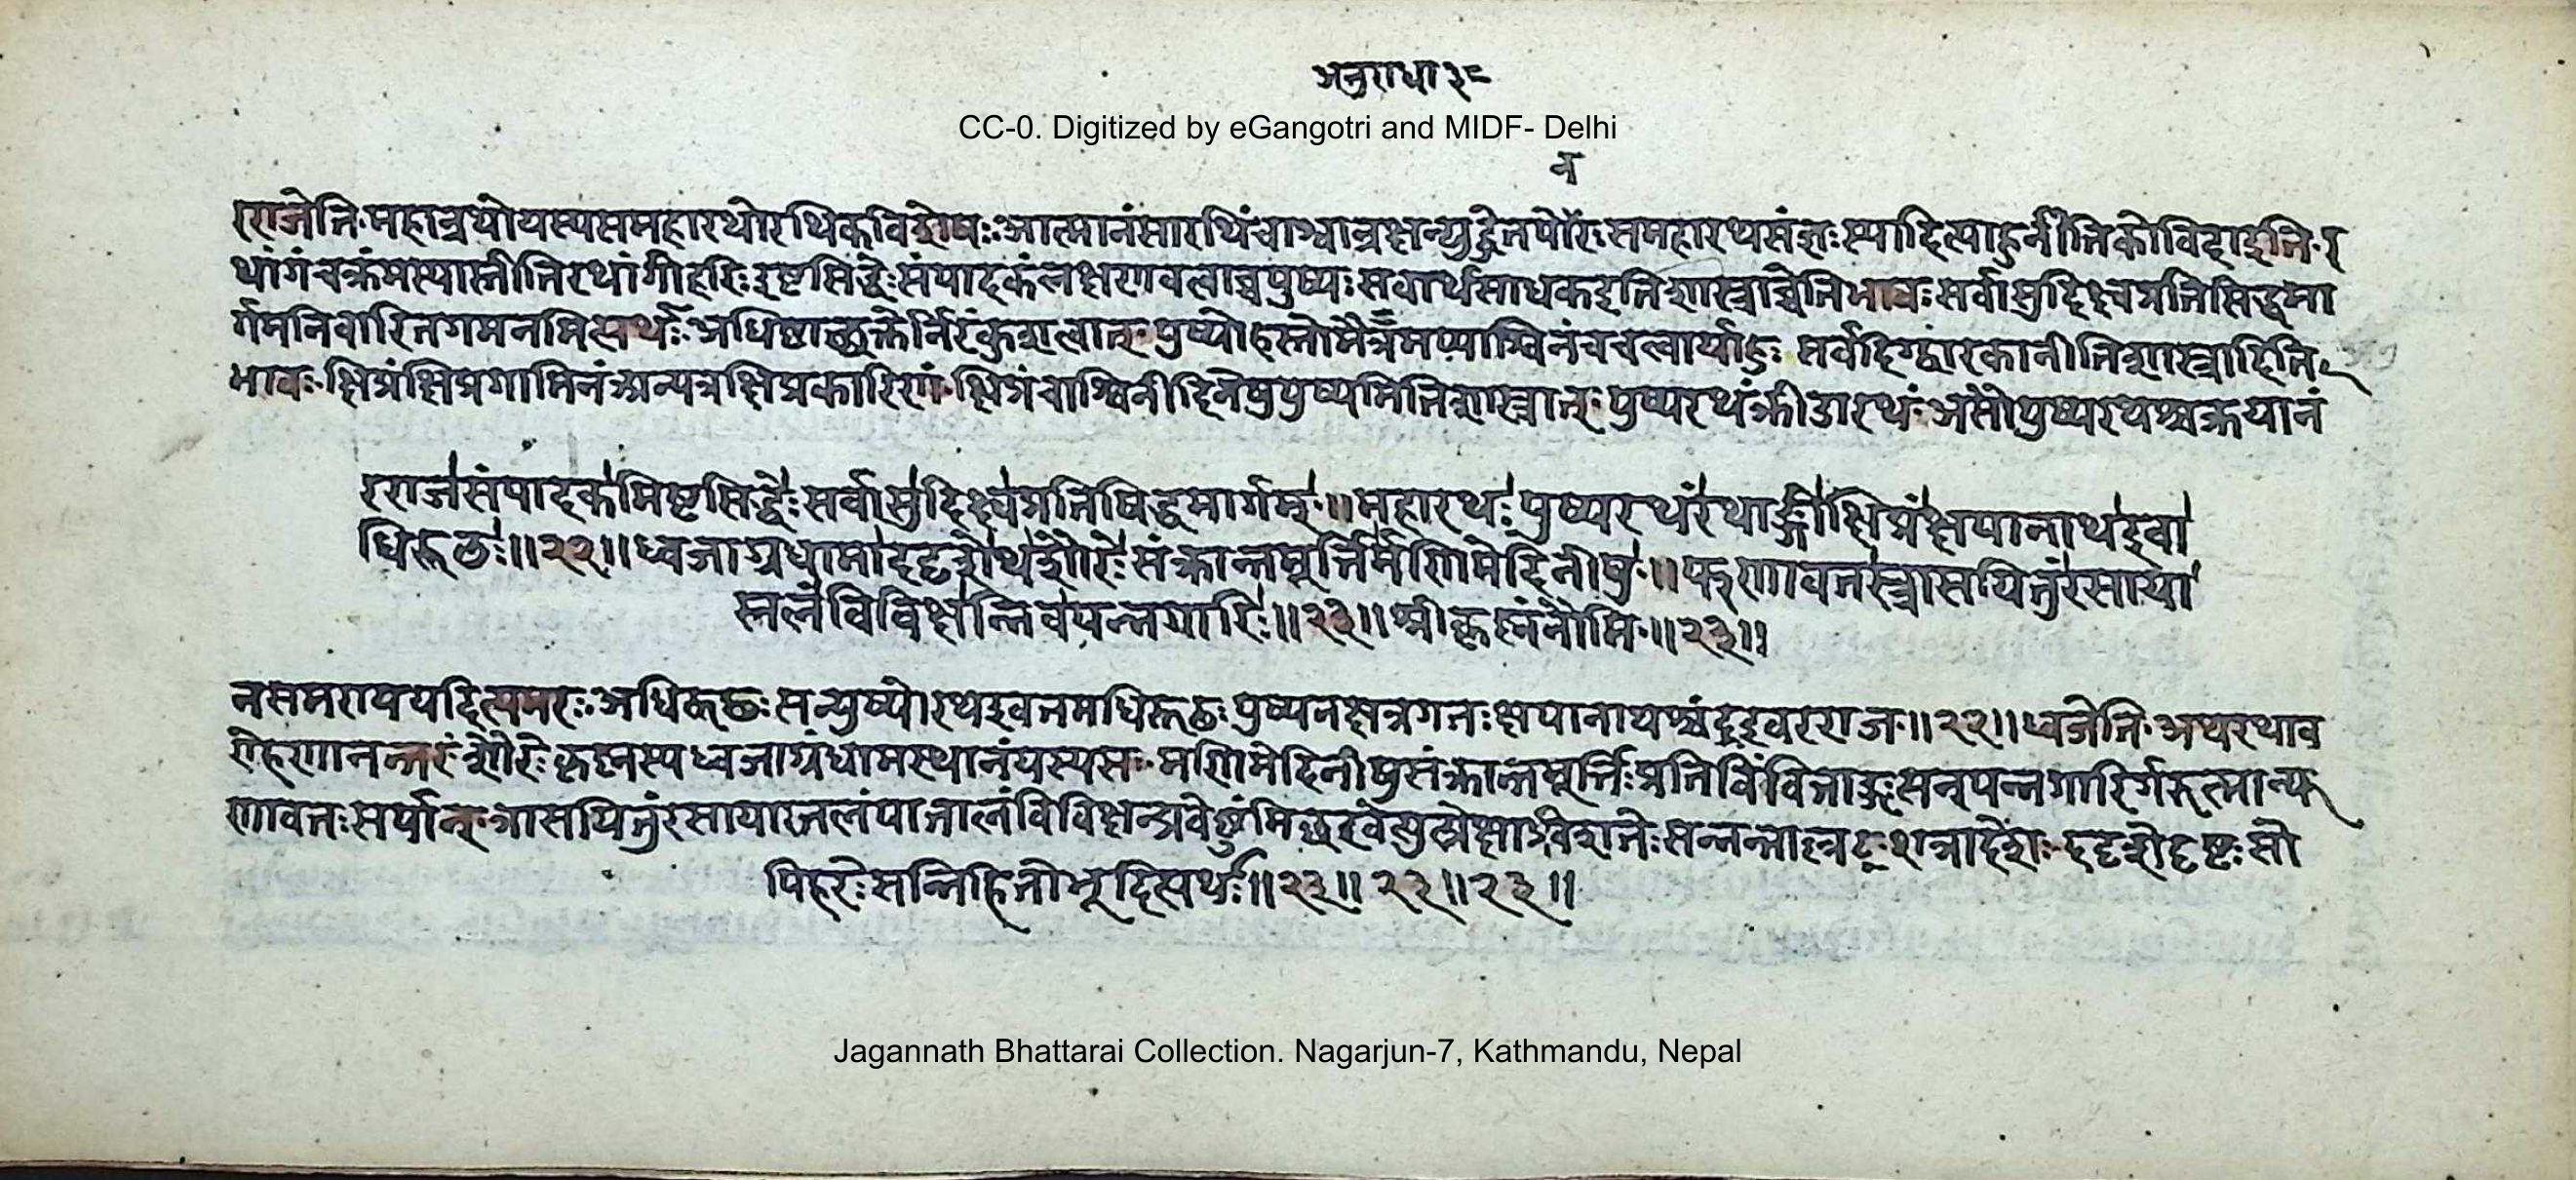 अनुराधा ३=
CC-0. Digitized by eGangotri and MIDF- Delhi
न
रराजेति·महान्रथोयस्यसमहारथोरथिकविशेषः·आत्मानंसारथिंचाश्वान्रक्षन्युद्धेतयोरः समहारथसंज्ञःस्यादित्याहुर्नीतिकोविदाइति·र
थांगंचक्रमस्यास्तीतिरथांगीहरिःइष्टसिद्धेःसंपादकंलक्षणवत्वाच्चपुष्यःसर्वार्थसाधकइतिशास्त्राच्चेतिभावःसर्वासुदिक्ष्वप्रतिसिद्धमा
र्गमनिवारितगमनमित्यर्थः·अधिष्टातृशक्तेर्निरंकुशत्वात्·पुष्योहस्तोमैत्रमप्याश्विनंचचत्वार्याहुः सर्वदिग्द्वारकानीतिशास्त्रादिति
भावः·क्षिप्रंक्षिप्रगामिनंअन्यत्रक्षिप्रकारिणं·क्षिप्रंचाश्विनीदिनेषुपुष्यमितिशास्त्रात्·पुष्यरथंक्रीडारथं·असौपुष्यरथश्चक्रयानं
रराजसंपादकमिष्टसिद्धेःसर्वासुदिक्ष्वप्रतिषिद्धमार्गम्·॥महारथःपुष्यरथंरथाङ्गीक्षिप्रंक्षपानाथइवा
धिरूढः॥२२॥ध्वजाग्रधामाददृशेथशौरेःसंक्रान्तमूर्त्तिर्मणिमेदिनीषु·॥फणावतस्त्रासयितुंरसाया
स्तलंविविक्षन्निवपन्नगारिः॥२३॥श्रीकृष्णंनौमि·॥२३॥
नसमरायययदित्यमरः·अधिरूढः सन्पुष्योरथइवतमधिरूढःपुष्यनक्षत्रगतःक्षपानाथश्चंद्रइवरराज·॥२२॥ध्वजेति·अथरथाव
रोहणानन्तरंशौरेःकृष्णस्यध्वजाग्रंधामस्थानंयस्यसः·मणिमेदिनीषुसंक्रान्तमूर्त्तिःप्रतिबिंबिताङ्गःसन्पन्नगारिर्गरुत्मान्फ
णावतःसर्पान्·त्रासयितुंरसायास्तलंपातालंविविक्षन्प्रवेष्टुमिच्छन्निवेत्युत्प्रेक्षाविशतेःसन्नन्ताल्लटःशत्रादेशः·ददृशेदृष्टःसो
पिहरेःसन्निहितोभूदित्यर्थः॥२३॥ २३॥२३॥
Jagannath Bhattarai Collection. Nagarjun-7, Kathmandu, Nepal